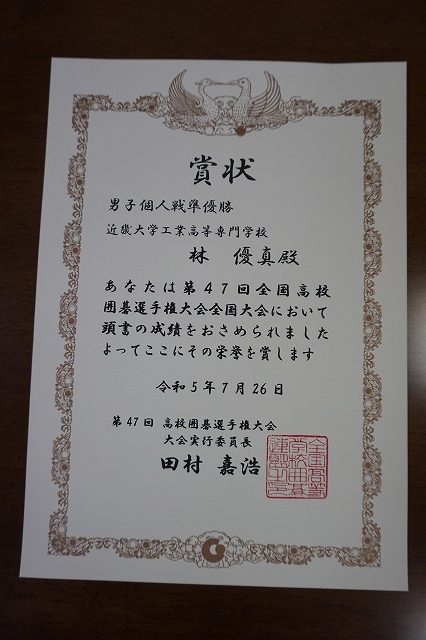 賞状
男子個人戦準優勝
近畿大学工業高等専門学校
林 優真殿
あなたは第47回全国高校
囲碁選手権大会全国大会において
頭書の成績をおさめられました
よってここにその栄誉を賞します
令和5年7月26日
第47回 高校囲碁選手権大会
大会実行委員長
田村 嘉浩